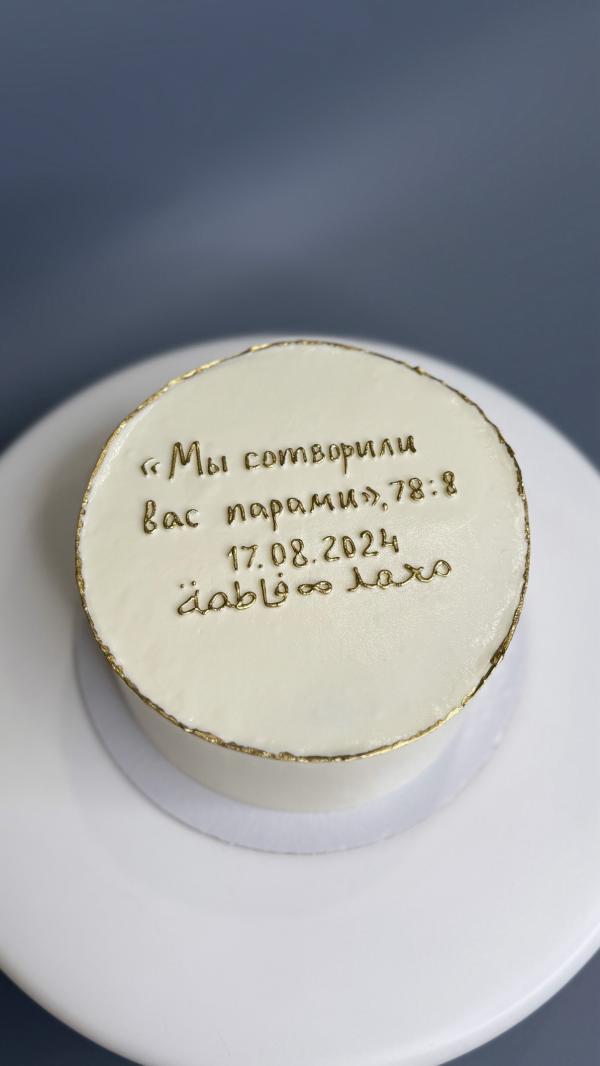 «Мы сотворили
вас парами», 78:8
17.08.2024
محمد ∞ فاطمة